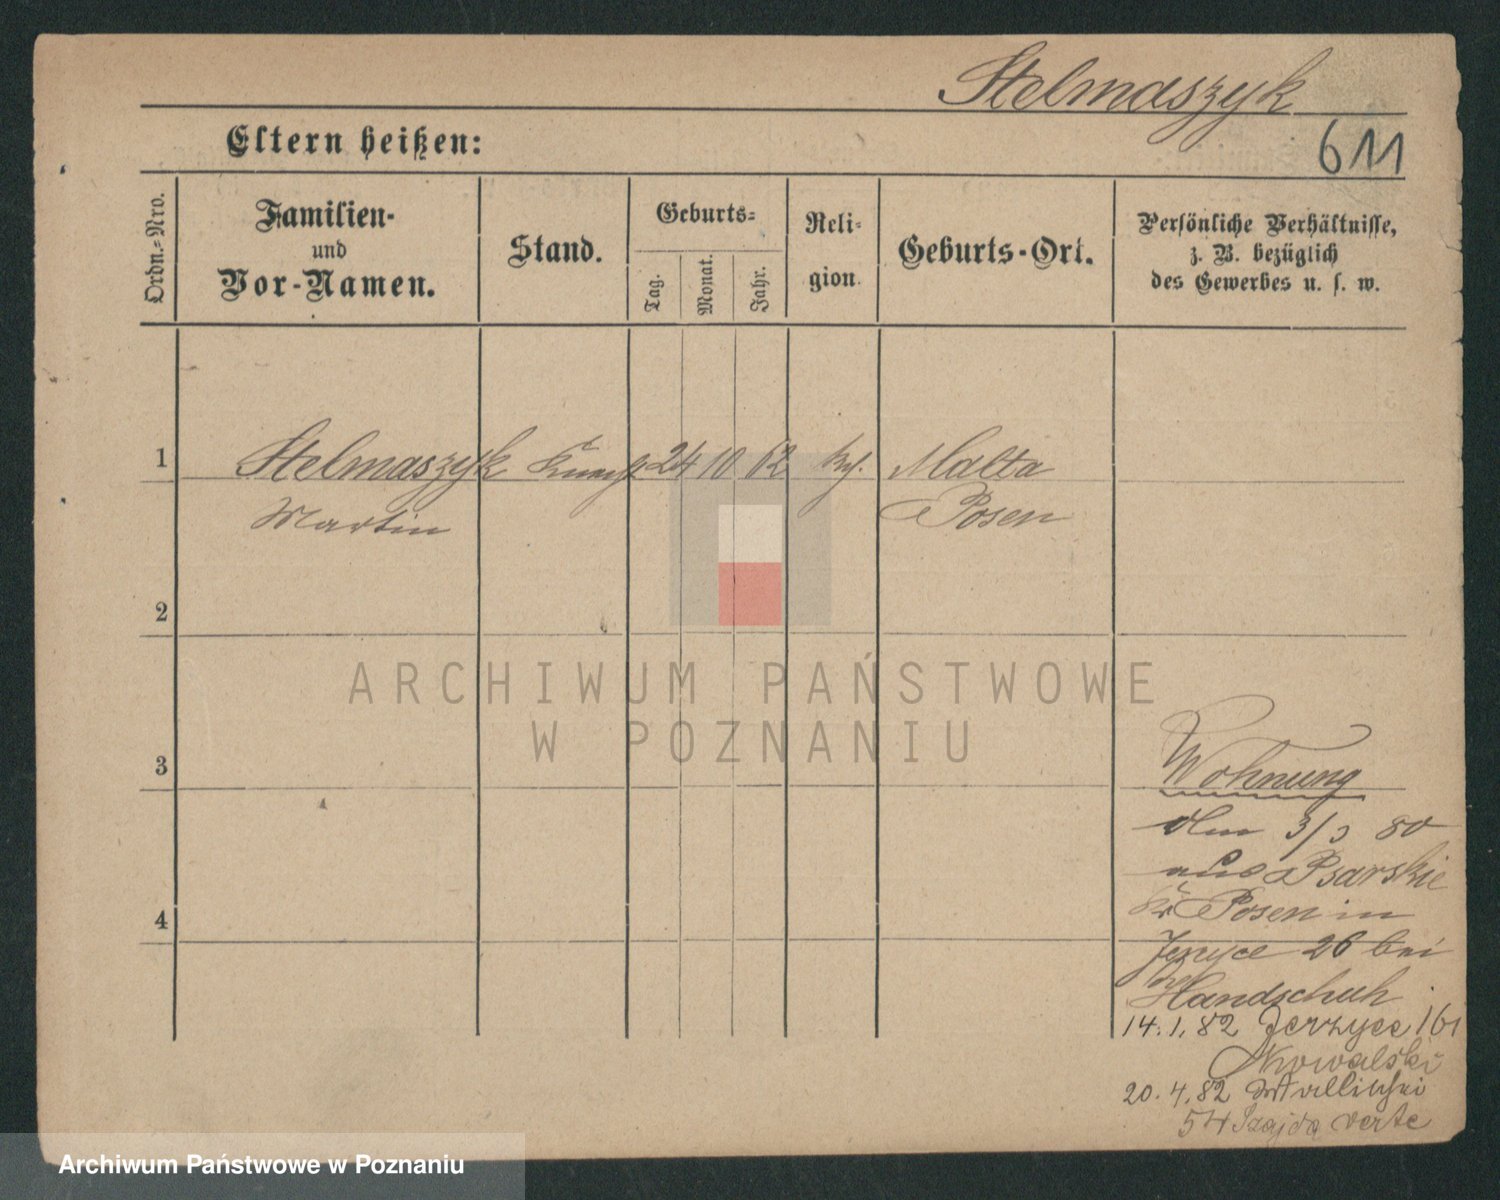 Stelmaszyk
611
Eltern heißen:
Ordn.=Nro.
Familien-
und
Vor-Namen.
Stand.
Geburts=
Tag.
Monat.
Jahr.
Reli-
gion.
Geburts-Ort.
Persönliche Verhältnisse,
z. B. bezüglich
des Gewerbes u. s. w.
1 Stelmaszyk Knecht 24 10 62 Malta
Martin Posen
2
3
4
ARCHIWUM PAŃSTWOWE
W POZNANIU
Wohnung
den 3/3 80
aus Psarskie
Kr Posen in
Jezyce 26 bei
Handschuh
14.1.82 Jerzyce 161
Nowalski
20.4.82
54 Szajda verte
Archiwum Państwowe w Poznaniu